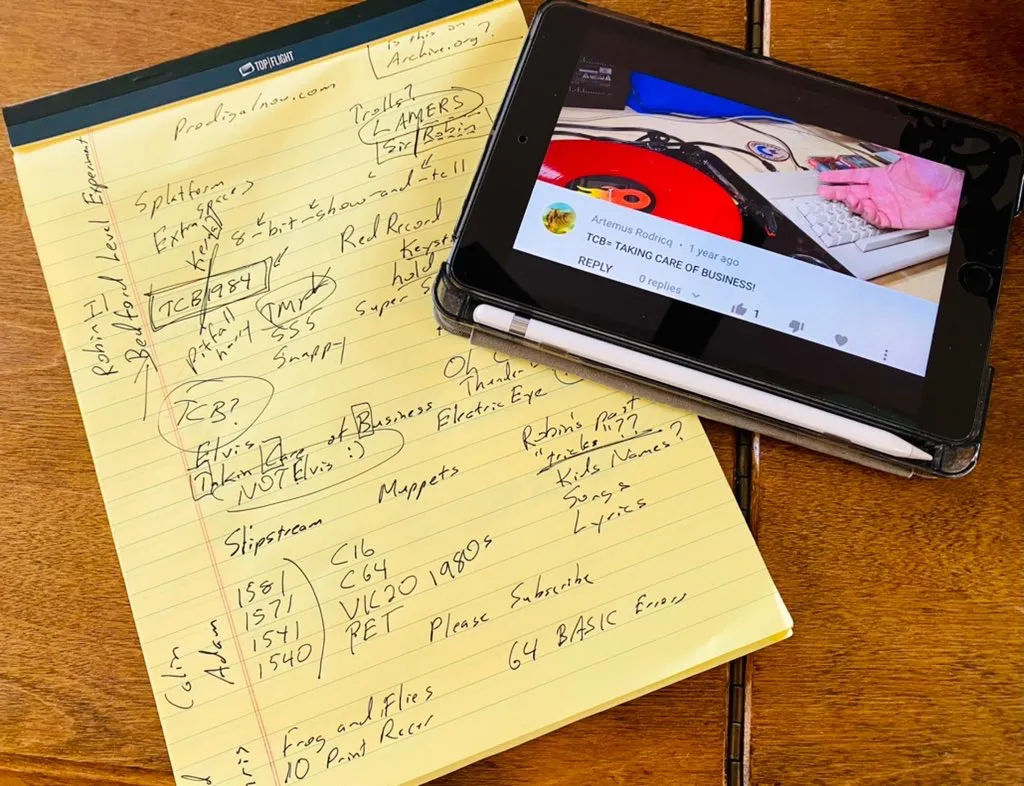 TOP FLIGHT
Is this on
Archive.org?
Prodigalnow.com
Trolls?
LAMERS
Sir Robin
Splatform
Extra spaces
8-bit-show-and-tell
Red Record
TCB 1984
TMP
SSS
Snappy
Super S
hold
Robin II
Bedford Level Experiment
TCB?
Elvis
Takin Care of Business
NOT Elvis :)
Thunder
Electric Eye
Robin's Past
"tricks"??
Kids Names?
Songs
Lyrics
Slipstream
Muppets
1581
1571
1541
1540
C16
C64
VIC20 1980s
PET
Please Subscribe
64 BASIC Errors
Colin
Adam
Frog and Flies
10 Print Racer
Artemus Rodricq · 1 year ago
TCB= TAKING CARE OF BUSINESS!
REPLY
0 replies
1